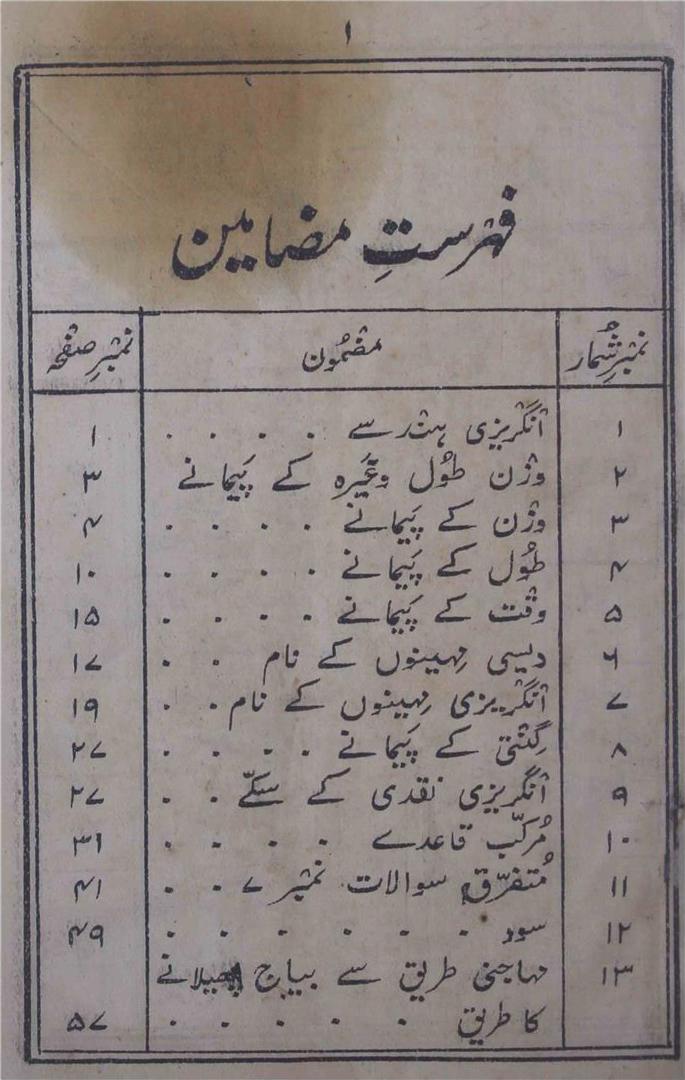 ۱
فہرستِ مضامین
نمبرِشُمار مضمُون نمبرِصفحہ
۱ انگریزی ہندسے . . . . ۱
۲ وزن طُول وغیرہ کے پَیمانے ۳
۳ وزن کے پَیمانے . . . . ۴
۴ طُول کے پَیمانے . . . . ۱۰
۵ وقت کے پَیمانے . . . . ۱۵
۶ دیسی مہینوں کے نام . . ۱۷
۷ انگریزی مہینوں کے نام . . ۱۹
۸ گِنتی کے پَیمانے . . . . ۲۷
۹ انگریزی نقدی کے سِکّے . . ۲۷
۱۰ مُرکّب قاعدے . . . . ۳۱
۱۱ مُتفرّق سوالات نمبر ۷ . . ۴۱
۱۲ سود . . . . . . ۴۹
۱۳ مہاجنی طریق سے بیاج پھیلانے
کا طریق . . . . . ۵۷